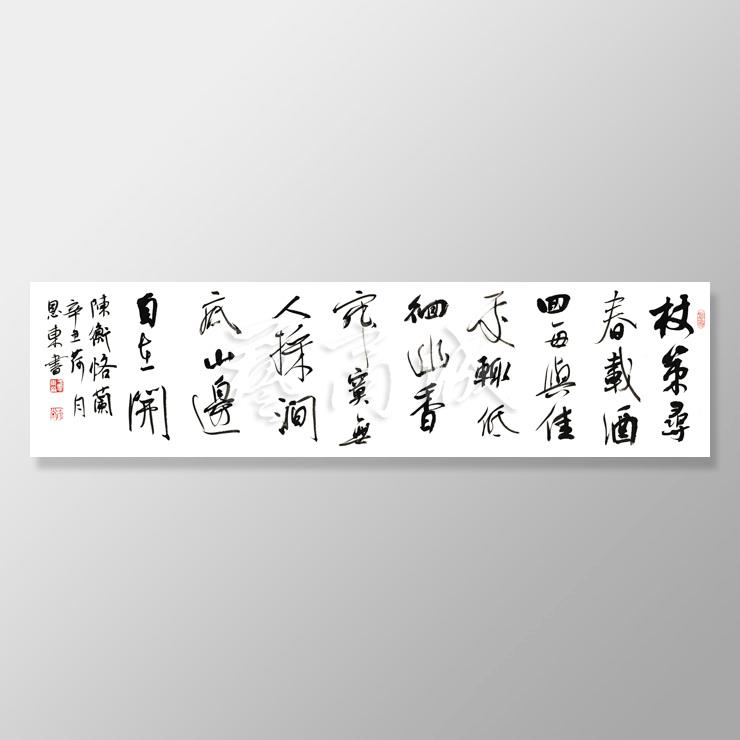 杖策尋
春載酒
回每與佳
處輒低
徊幽香
寂寞無
人採澗
底山邊
自在開
陳衡恪蘭
辛丑荷月
思東書